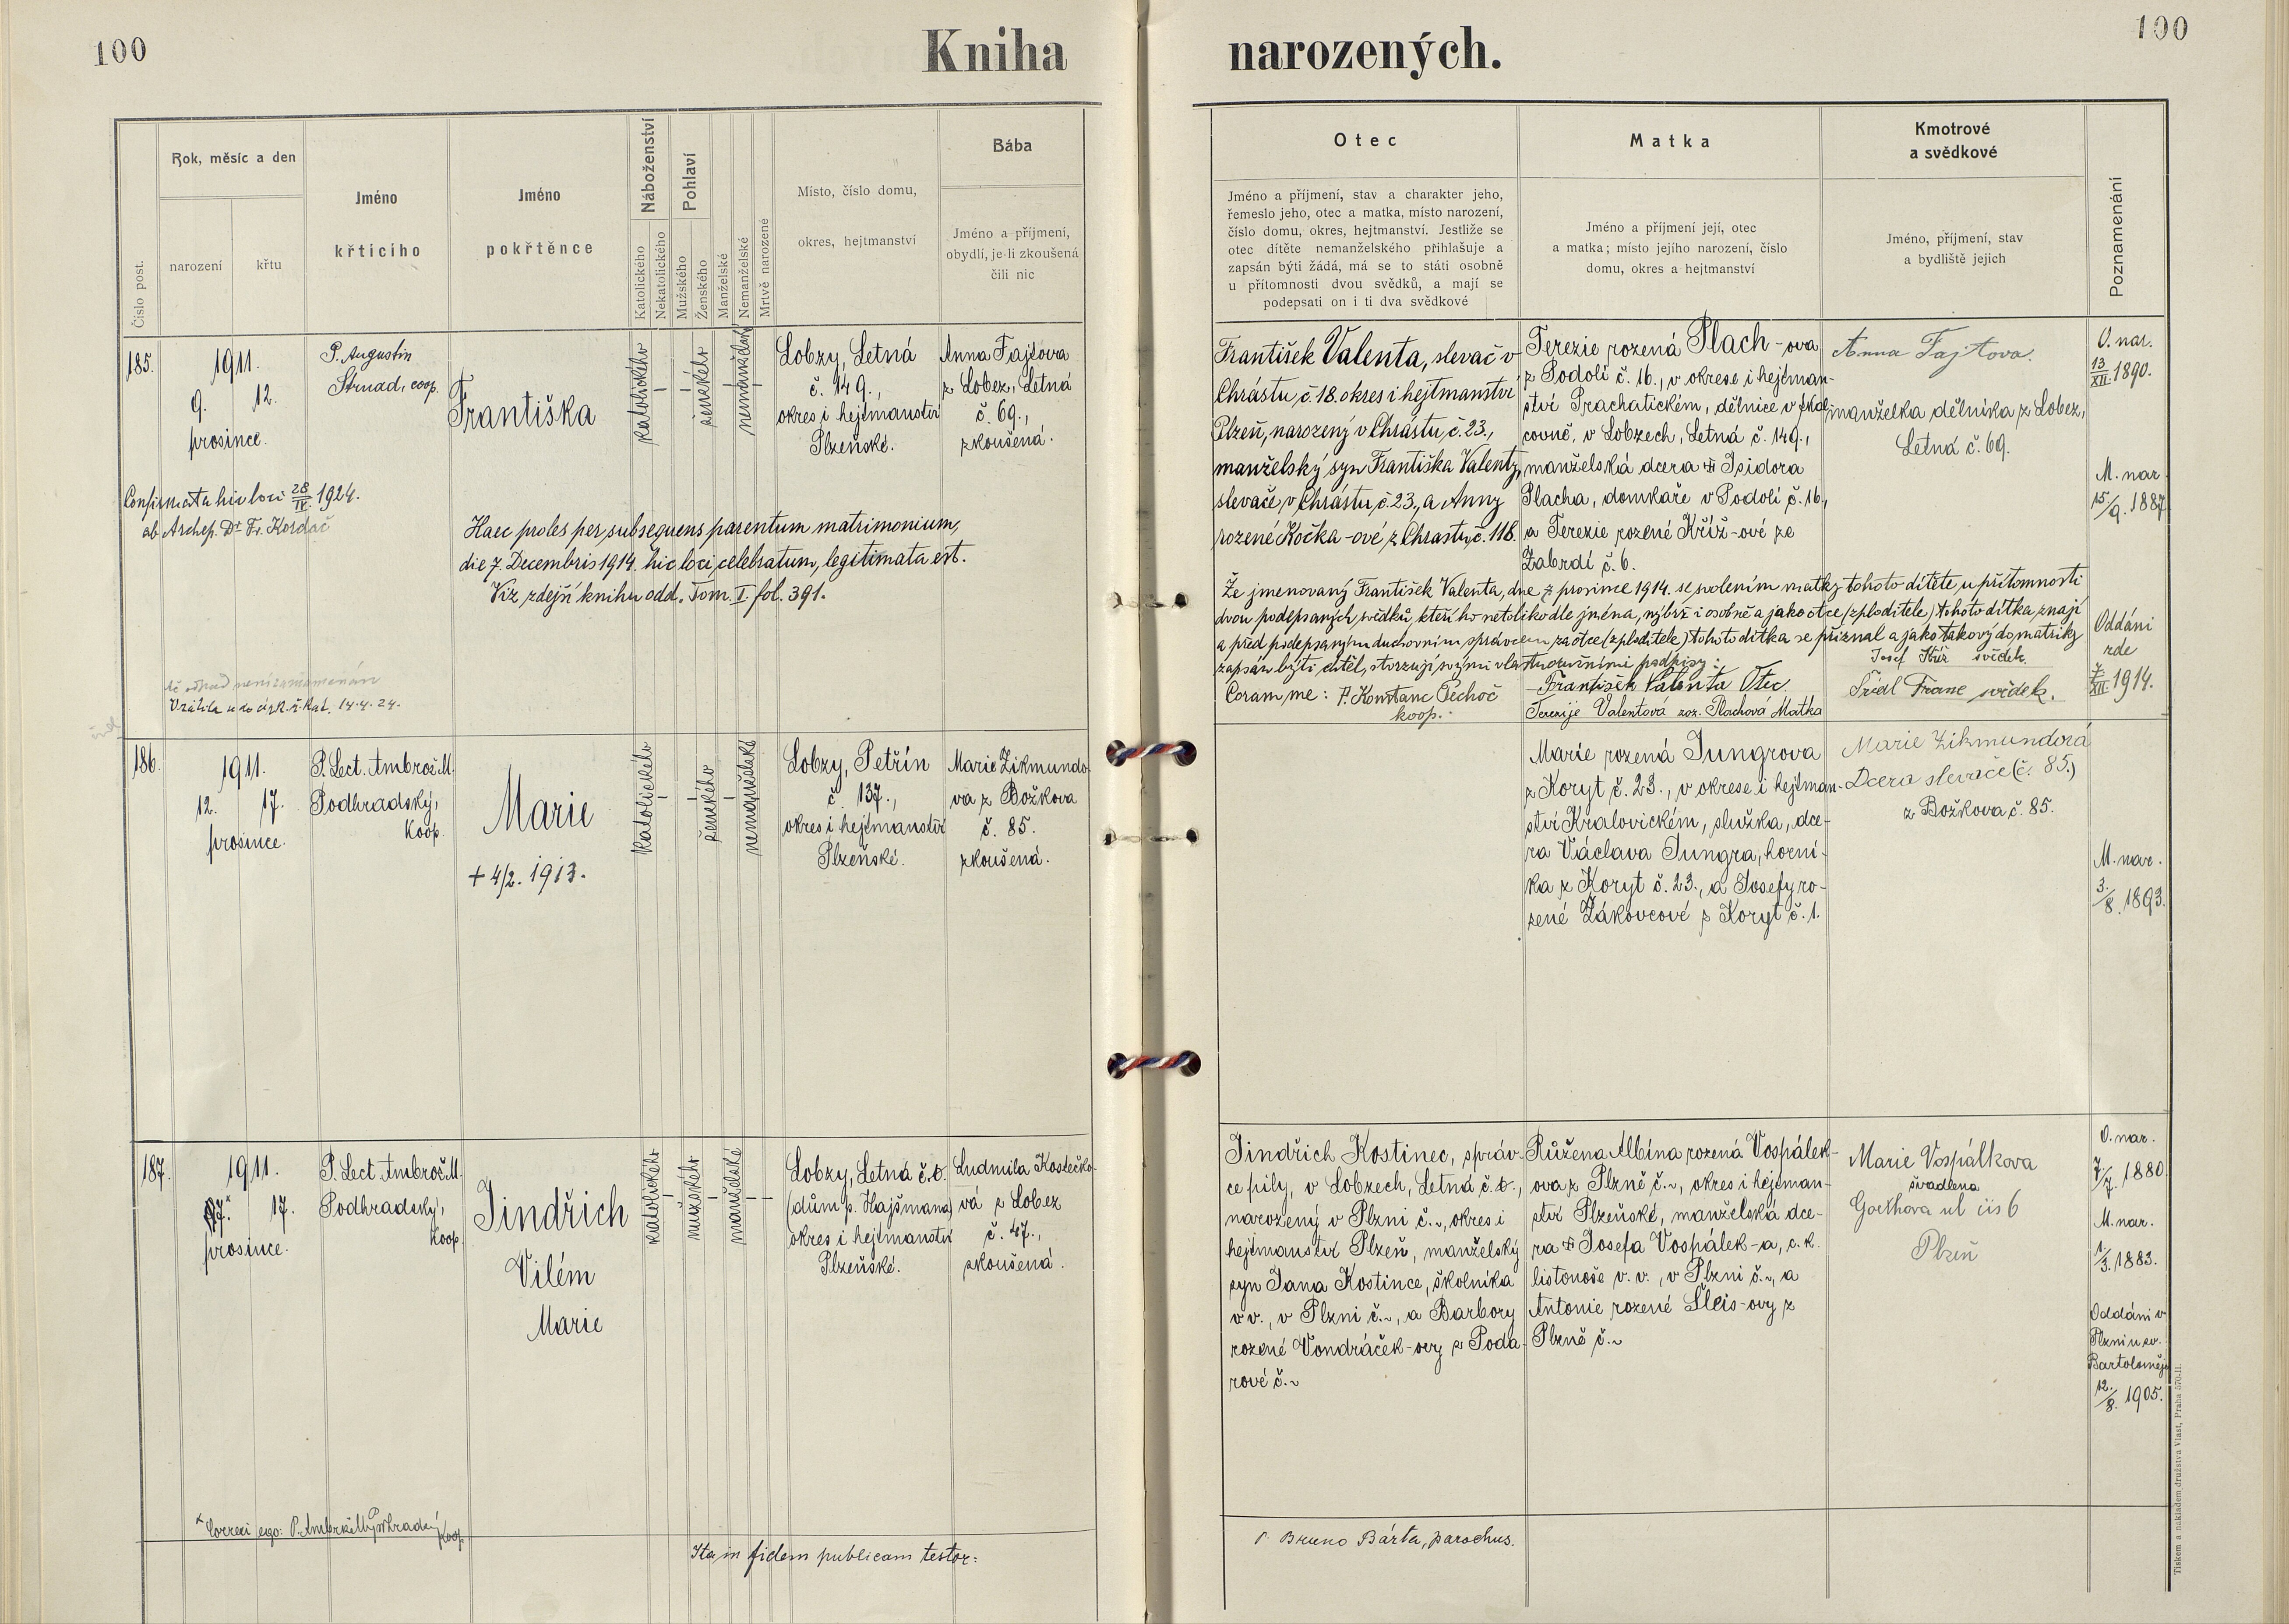 100
Kniha
narozených.
100
Číslo post.
Rok, měsíc a den
narození
křtu
Jméno
křticího
Jméno
pokřtěnce
Náboženství
Katolického
Nekatolického
Pohlaví
Mužského
Ženského
Manželské
Nemanželské
Mrtvě narozené
Místo, číslo domu,
okres, hejtmanství
Bába
Jméno a příjmení,
obydlí, je-li zkoušená
čili nic
Otec
Jméno a příjmení, stav a charakter jeho,
řemeslo jeho, otec a matka, místo narození,
číslo domu, okres, hejtmanství. Jestliže se
otec dítěte nemanželského přihlašuje a
zapsán býti žádá, má se to státi osobně
u přítomnosti dvou svědků, a mají se
podepsati on i ti dva svědkové
Matka
Jméno a příjmení její, otec
a matka; místo jejího narození, číslo
domu, okres a hejtmanství
Kmotrové
a svědkové
Jméno, příjmení, stav
a bydliště jejich
Poznamenání
185.
1911.
9. 12.
prosince.
P. Augustin
Strnad, coop.
Františka
katolického
ženského
nemanželské
Lobzy, Letná
č. 149.,
okres i hejtmanství
Plzeňské.
Anna Fajtova
z Lobez, Letná
č. 69.,
zkoušená.
Confirmata hic loci 28/IV. 1924.
ab Archep. Dr. Fr. Kordač
Haec proles per subsequens parentum matrimonium,
die 7. Decembris 1914. hic loci celebratum, legitimata est.
Viz zdejší knihu odd. Tom. I. fol. 391.
14.4.24.
František Valenta, slevač v
Chrástu, č. 18. okres i hejtmanství
Plzeň, narozený v Chrástu, č. 23.,
manželský syn Františka Valenty,
slevače v Chrástu, č. 23., a Anny
rozené Kočka-ové z Chrastu, č. 118.
Terezie rozená Plach-ova
z Podolí č. 16., v okrese i hejtman-
ství Prachatickém, dělnice v škol
covně, v Lobzech, Letná č. 149.,
manželská dcera Isidora
Placha, domkaře v Podolí č. 16.,
a Terezie rozené Kříž-ové ze
Zabrdí č. 6.
Anna Fajtova.
manželka dělníka z Lobez,
Letná č. 69.
O. nar.
13/XII. 1890.
M. nar.
15/9. 1887.
Oddáni
zde
7/XII. 1914.
Že jmenovaný František Valenta, dne 7. prosince 1914. se svolením matky tohoto dítěte, u přítomnosti
dvou podepsaných svědků, kteří ho netoliko dle jména, nýbrž i osobně a jako otce (zploditele) tohoto dítka znají
a před podepsaným duchovním správcem za otce (zploditele) tohoto dítka se přiznal a jako takový do matriky
zapsán býti chtěl, stvrzují svými vlastnoručními podpisy:
Josef Kříž svědek.
Coram me: P. Konstanc Pechoč
koop.
František Valenta Otec.
Terezije Valentová roz. Plachová Matka
Franc svědek.
186.
1911.
12. 17.
prosince.
P. Lect. Ambrož M.
Podhradský,
Koop.
Marie
+ 4/2. 1913.
katolického
ženského
nemanželské
Lobzy, Petřín
č. 137.,
okres i hejtmanství
Plzeňské.
Marie Zikmundo-
va z Božkova
č. 85.
zkoušená.
Marie rozená Jungrova
z Koryt č. 23., v okrese i hejtman-
ství Kralovickém, služka, dce-
ra Václava Jungra, horní-
ka z Koryt č. 23., a Josefy ro-
zené Žákovcové z Koryt č. 1.
Marie Zikmundová
Dcera slevače (č. 85.)
z Božkova č. 85.
M. nar.
3./8. 1893.
187.
1911.
17.* 17.
prosince.
P. Lect. Ambrož M.
Podhradský,
Koop.
Jindřich
Vilém
Marie
katolického
mužského
manželské
Lobzy, Letná č. t.
(dům p. Hajšmana)
okres i hejtmanství
Plzeňské.
Ludmila Kostečko-
vá z Lobez
č. 47.,
zkoušená.
Jindřich Kostinec, správ-
ce pily, v Lobzech, Letná č. t.,
narozený v Plzni č. ~, okres i
hejtmanství Plzeň, manželský
syn Jana Kostince, školníka
v v., v Plzni č. ~, a Barbory
rozené Vondráček-ovy z Poda-
rové č. ~
Růžena Albína rozená Vospálek-
ova z Plzně č. ~, okres i hejtman-
ství Plzeňské, manželská dce-
ra Josefa Vospálek-a, c. k.
listonoše v. v., v Plzni č. ~, a
Antonie rozené Šleis-ovy z
Plzně č. ~
Marie Vospálkova
švadlena
Goethova ul čis 6
Plzeň
O. nar.
7/7. 1880.
M. nar.
1/3. 1883.
Oddáni v
Plzni u sv.
Bartoloměje
12./8. 1905.
* Correxi ego: P. Ambrož M. Podhradský
Koop.
Ita in fidem publicam testor:
P. Bruno Bárta, parochus.
Tiskem a nákladem družstva Vlast, Praha 570-II.